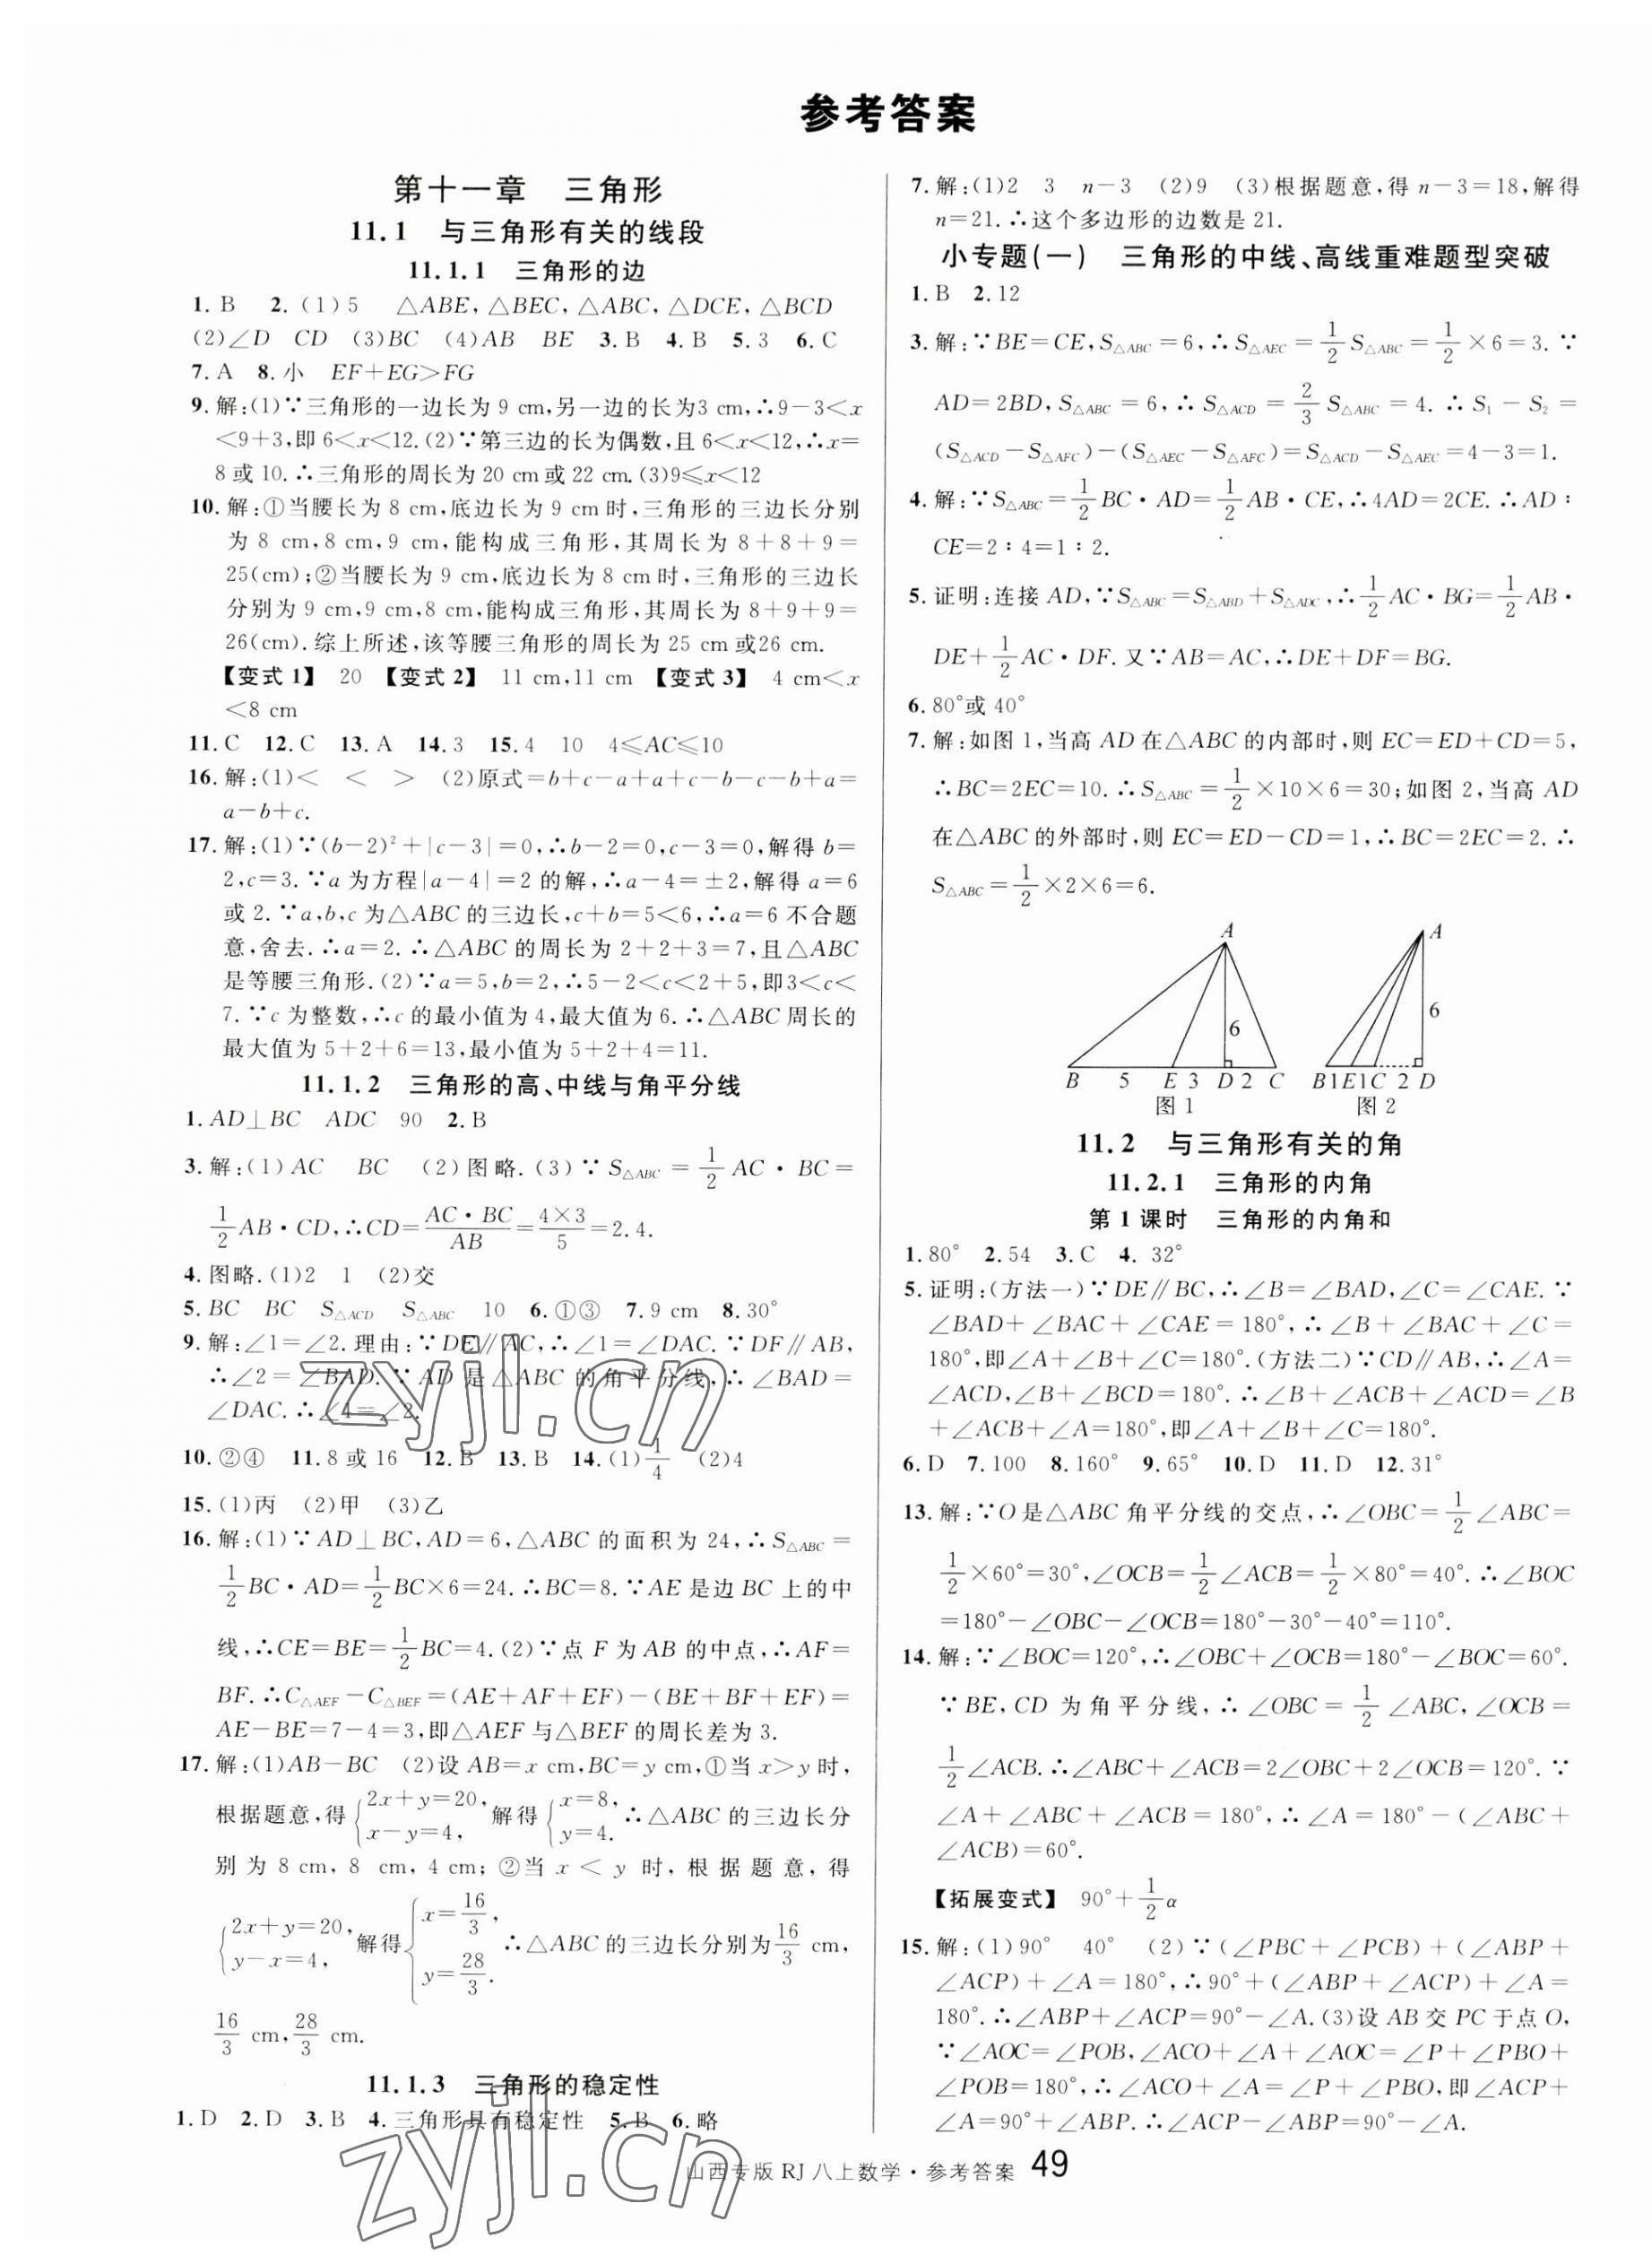 参考答案
第十一章 三角形
11.1 与三角形有关的线段
11.1.1 三角形的边
1. B 2. (1)5 △ABE,△BEC,△ABC,△DCE,△BCD
(2)∠D CD (3)BC (4)AB BE 3. B 4. B 5. 3 6. C
7. A 8. 小 EF+EG>FG
9. 解:(1)∵三角形的一边长为 9 cm,另一边的长为3 cm,∴9-3<x
<9+3,即 6<x<12. (2)∵第三边的长为偶数,且 6<x<12,∴x=
8 或 10. ∴三角形的周长为 20 cm 或 22 cm. (3)9≤x<12
10. 解:①当腰长为 8 cm,底边长为 9 cm 时,三角形的三边长分别
为 8 cm,8 cm,9 cm,能构成三角形,其周长为 8+8+9=
25(cm);②当腰长为 9 cm,底边长为 8 cm 时,三角形的三边长
分别为 9 cm,9 cm,8 cm,能构成三角形,其周长为 8+9+9=
26(cm). 综上所述,该等腰三角形的周长为 25 cm 或26 cm.
【变式 1】 20 【变式 2】 11 cm,11 cm 【变式 3】 4 cm<x
<8 cm
11. C 12. C 13. A 14. 3 15. 4 10 4≤AC≤10
16. 解:(1)< < > (2)原式=b+c-a+a+c-b-c-b+a=
a-b+c.
17. 解:(1)∵(b-2)²+|c-3|=0,∴b-2=0,c-3=0,解得 b=
2,c=3. ∵a 为方程|a-4|=2 的解,∴a-4=±2,解得 a=6
或 2. ∵a,b,c 为△ABC 的三边长,c+b=5<6,∴a=6 不合题
意,舍去. ∴a=2. ∴△ABC 的周长为 2+2+3=7,且△ABC
是等腰三角形. (2)∵a=5,b=2,∴5-2<c<2+5,即3<c<
7. ∵c 为整数,∴c 的最小值为 4,最大值为 6. ∴△ABC 周长的
最大值为 5+2+6=13,最小值为 5+2+4=11.
11.1.2 三角形的高、中线与角平分线
1. AD⊥BC ADC 90 2. B
3. 解:(1)AC BC (2)图略. (3)∵S△ABC=1/2 AC·BC=
1/2 AB·CD,∴CD=AC·BC/AB=4×3/5=2.4.
4. 图略. (1)2 1 (2)交
5. BC BC S△ACD S△ABC 10 6. ①③ 7. 9 cm 8. 30°
9. 解:∠1=∠2. 理由:∵DE∥AC,∴∠1=∠DAC. ∵DF∥AB,
∴∠2=∠BAD. ∵AD 是△ABC 的角平分线,∴∠BAD=
∠DAC. ∴∠1=∠2.
10. ②④ 11. 8 或 16 12. B 13. B 14. (1)1/4 (2)4
15. (1)丙 (2)甲 (3)乙
16. 解:(1)∵AD⊥BC,AD=6,△ABC 的面积为 24,∴S△ABC=
1/2 BC·AD=1/2 BC×6=24. ∴BC=8. ∵AE 是边 BC 上的中
线,∴CE=BE=1/2 BC=4. (2)∵点 F 为 AB 的中点,∴AF=
BF. ∴C△AEF-C△BEF=(AE+AF+EF)-(BE+BF+EF)=
AE-BE=7-4=3,即△AEF 与△BEF 的周长差为 3.
17. 解:(1)AB-BC (2)设 AB=x cm,BC=y cm,①当 x>y 时,
根据题意,得{2x+y=20, x-y=4, 解得{x=8, y=4. ∴△ABC 的三边长分
别为 8 cm,8 cm,4 cm;②当 x<y 时,根据题意,得
{2x+y=20, y-x=4, 解得{x=16/3, y=28/3. ∴△ABC 的三边长分别为16/3 cm,
16/3 cm,28/3 cm.
11.1.3 三角形的稳定性
1. D 2. D 3. B 4. 三角形具有稳定性 5. B 6. 略
7. 解:(1)2 3 n-3 (2)9 (3)根据题意,得 n-3=18,解得
n=21. ∴这个多边形的边数是 21.
小专题(一) 三角形的中线、高线重难题型突破
1. B 2. 12
3. 解:∵BE=CE,S△ABC=6,∴S△AEC=1/2 S△ABC=1/2×6=3. ∵
AD=2BD,S△ABC=6,∴S△ACD=2/3 S△ABC=4. ∴S₁-S₂=
(S△ACD-S△AFC)-(S△AEC-S△AFC)=S△ACD-S△AEC=4-3=1.
4. 解:∵S△ABC=1/2 BC·AD=1/2 AB·CE,∴4AD=2CE. ∴AD∶
CE=2∶4=1∶2.
5. 证明:连接 AD,∵S△ABC=S△ABD+S△ADC,∴1/2 AC·BG=1/2 AB·
DE+1/2 AC·DF. 又∵AB=AC,∴DE+DF=BG.
6. 80°或 40°
7. 解:如图 1,当高 AD 在△ABC 的内部时,则 EC=ED+CD=5,
∴BC=2EC=10. ∴S△ABC=1/2×10×6=30;如图 2,当高 AD
在△ABC 的外部时,则 EC=ED-CD=1,∴BC=2EC=2. ∴
S△ABC=1/2×2×6=6.
A A
6 6
B 5 E 3 D 2 C B1E1C 2 D
图 1 图 2
11.2 与三角形有关的角
11.2.1 三角形的内角
第 1 课时 三角形的内角和
1. 80° 2. 54 3. C 4. 32°
5. 证明:(方法一)∵DE∥BC,∴∠B=∠BAD,∠C=∠CAE. ∵
∠BAD+∠BAC+∠CAE=180°,∴∠B+∠BAC+∠C=
180°,即∠A+∠B+∠C=180°. (方法二)∵CD∥AB,∴∠A=
∠ACD,∠B+∠BCD=180°. ∴∠B+∠ACB+∠ACD=∠B
+∠ACB+∠A=180°,即∠A+∠B+∠C=180°.
6. D 7. 100 8. 160° 9. 65° 10. D 11. D 12. 31°
13. 解:∵O 是△ABC 角平分线的交点,∴∠OBC=1/2∠ABC=
1/2×60°=30°,∠OCB=1/2∠ACB=1/2×80°=40°. ∴∠BOC
=180°-∠OBC-∠OCB=180°-30°-40°=110°.
14. 解:∵∠BOC=120°,∴∠OBC+∠OCB=180°-∠BOC=60°.
∵BE,CD 为角平分线,∴∠OBC=1/2∠ABC,∠OCB=
1/2∠ACB. ∴∠ABC+∠ACB=2∠OBC+2∠OCB=120°. ∵
∠A+∠ABC+∠ACB=180°,∴∠A=180°-(∠ABC+
∠ACB)=60°.
【拓展变式】 90°+1/2 α
15. 解:(1)90° 40° (2)∵(∠PBC+∠PCB)+(∠ABP+
∠ACP)+∠A=180°,∴90°+(∠ABP+∠ACP)+∠A=
180°. ∴∠ABP+∠ACP=90°-∠A. (3)设 AB 交 PC 于点 O,
∵∠AOC=∠POB,∠ACO+∠A+∠AOC=∠P+∠PBO+
∠POB=180°,∴∠ACO+∠A=∠P+∠PBO,即∠ACP+
∠A=90°+∠ABP. ∴∠ACP-∠ABP=90°-∠A.
山西专版 RJ 八上数学·参考答案 49
zyjl.cn
zyjl.cn